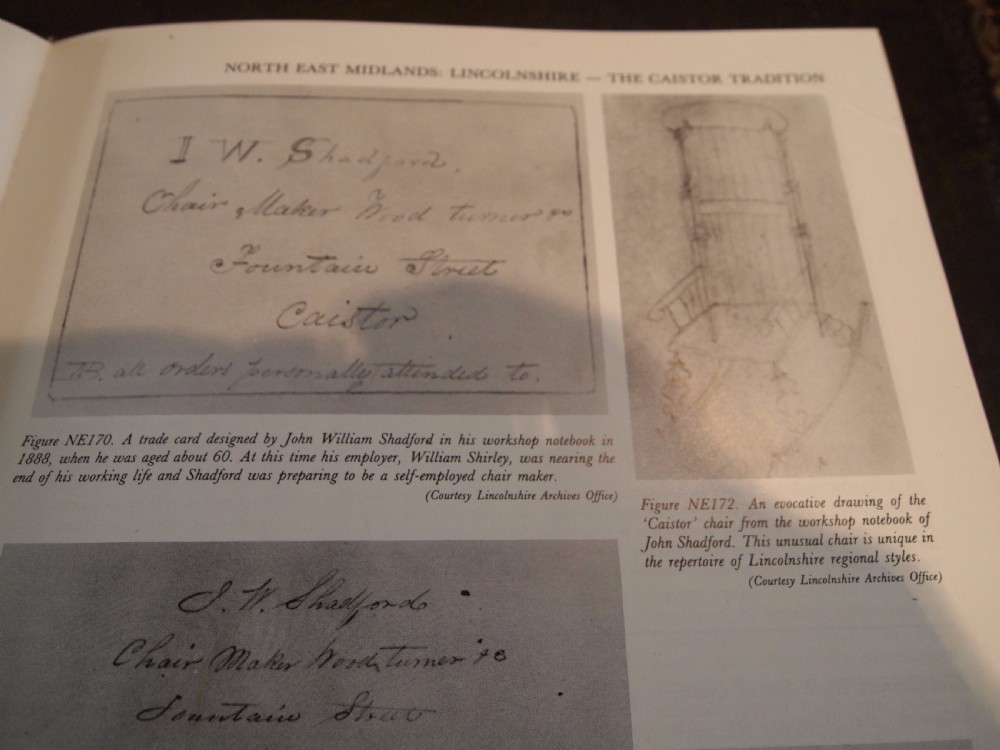 NORTH EAST MIDLANDS: LINCOLNSHIRE — THE CAISTOR TRADITION
I W. Shadford.
Chair Maker Wood turner &c
Fountain Street
Caistor
NB. all orders personally attended to.
Figure NE170. A trade card designed by John William Shadford in his workshop notebook in
1888, when he was aged about 60. At this time his employer, William Shirley, was nearing the
end of his working life and Shadford was preparing to be a self-employed chair maker.
(Courtesy Lincolnshire Archives Office)
Figure NE172. An evocative drawing of the
'Caistor' chair from the workshop notebook of
John Shadford. This unusual chair is unique in
the repertoire of Lincolnshire regional styles.
(Courtesy Lincolnshire Archives Office)
J. W. Shadford
Chair Maker Wood turner &c
Fountain Street